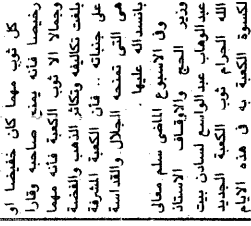 كل ثوب مهما كان خفيفا او
رخيصا فانه يمنح صاحبه وقارا
وجمالا الا ثوب الكعبة فانه مهما
بلغت تكاليفه وتكاثر الذهب والفضة
على جنباته .. فان الكعبة المشرفة
هى التى تمنحه الجلال والقداسة
بانسداله عليها .
وفى الاسبوع الماضى سلم معالى
وزير الحج والاوقاف الاستاذ
عبد الوهاب عبد الواسع لسادن بيت
الله الحرام ثوب الكعبة الجديد
لكسوة الكعبة به فى هذه الايام